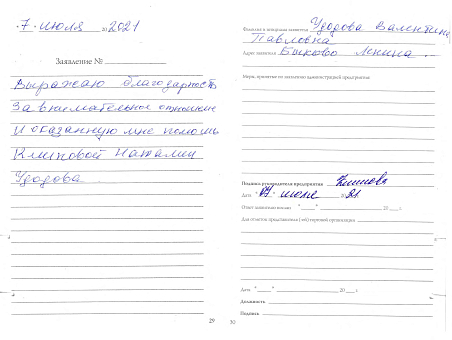 "7" июля 2021
Заявление №
Выражаю благодарность
За внимательное отношение
И оказанную мне помощь
Климовой Наталии
Удодова
29
Фамилия и инициалы заявителя Удодова Валентина
Павловна
Адрес заявителя Быково Ленина
Меры, принятые по заявлению администрацией предприятия
Подпись руководителя предприятия
Дата "07" июля 2021
Ответ заявителю послан "___" 20 г.
Для отметок представителя (-ей) торговой организации
Дата "___" 20 г.
Должность
Подпись
30